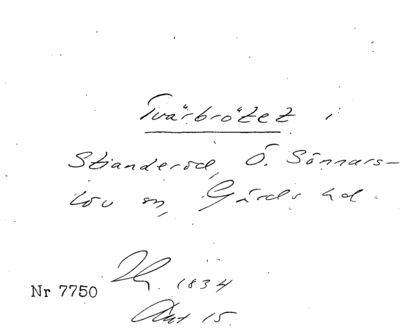 Tvärbrötet i
Skanderöd, Ö. Sönnars-
löv sn, Gärds hd.
1834
Nr 7750
Akt 15.